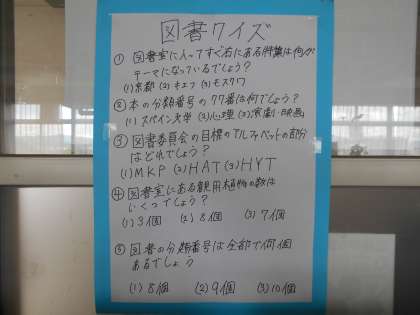 図書クイズ
① 図書室に入ってすぐ右にある特集は何が
テーマになっているでしょう?
(1)京都 (2)キエフ (3)モスクワ
② 本の分類番号の77番は何でしょう?
(1)スペイン文学 (2)心理 (3)演劇・映画
③ 図書委員会の目標のアルファベットの部分
はどれでしょう?
(1)MKP (2)HAT (3)HYT
④ 図書室にある観用植物の数は
いくつでしょう?
(1)3個 (2)8個 (3)7個
⑤ 図書の分類番号は全部で何個
あるでしょう
(1)8個 (2)9個 (3)10個